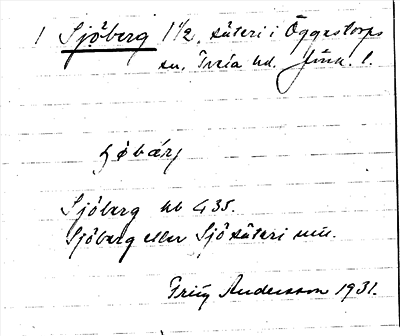 1 Sjöberg 1 1/2. säteri i Öggestorps
sn. Tveta hd. Jönk. l.
Sjöberg hb G 35.
Sjöberg eller Sjö säteri
Fritz Andersson 1931.